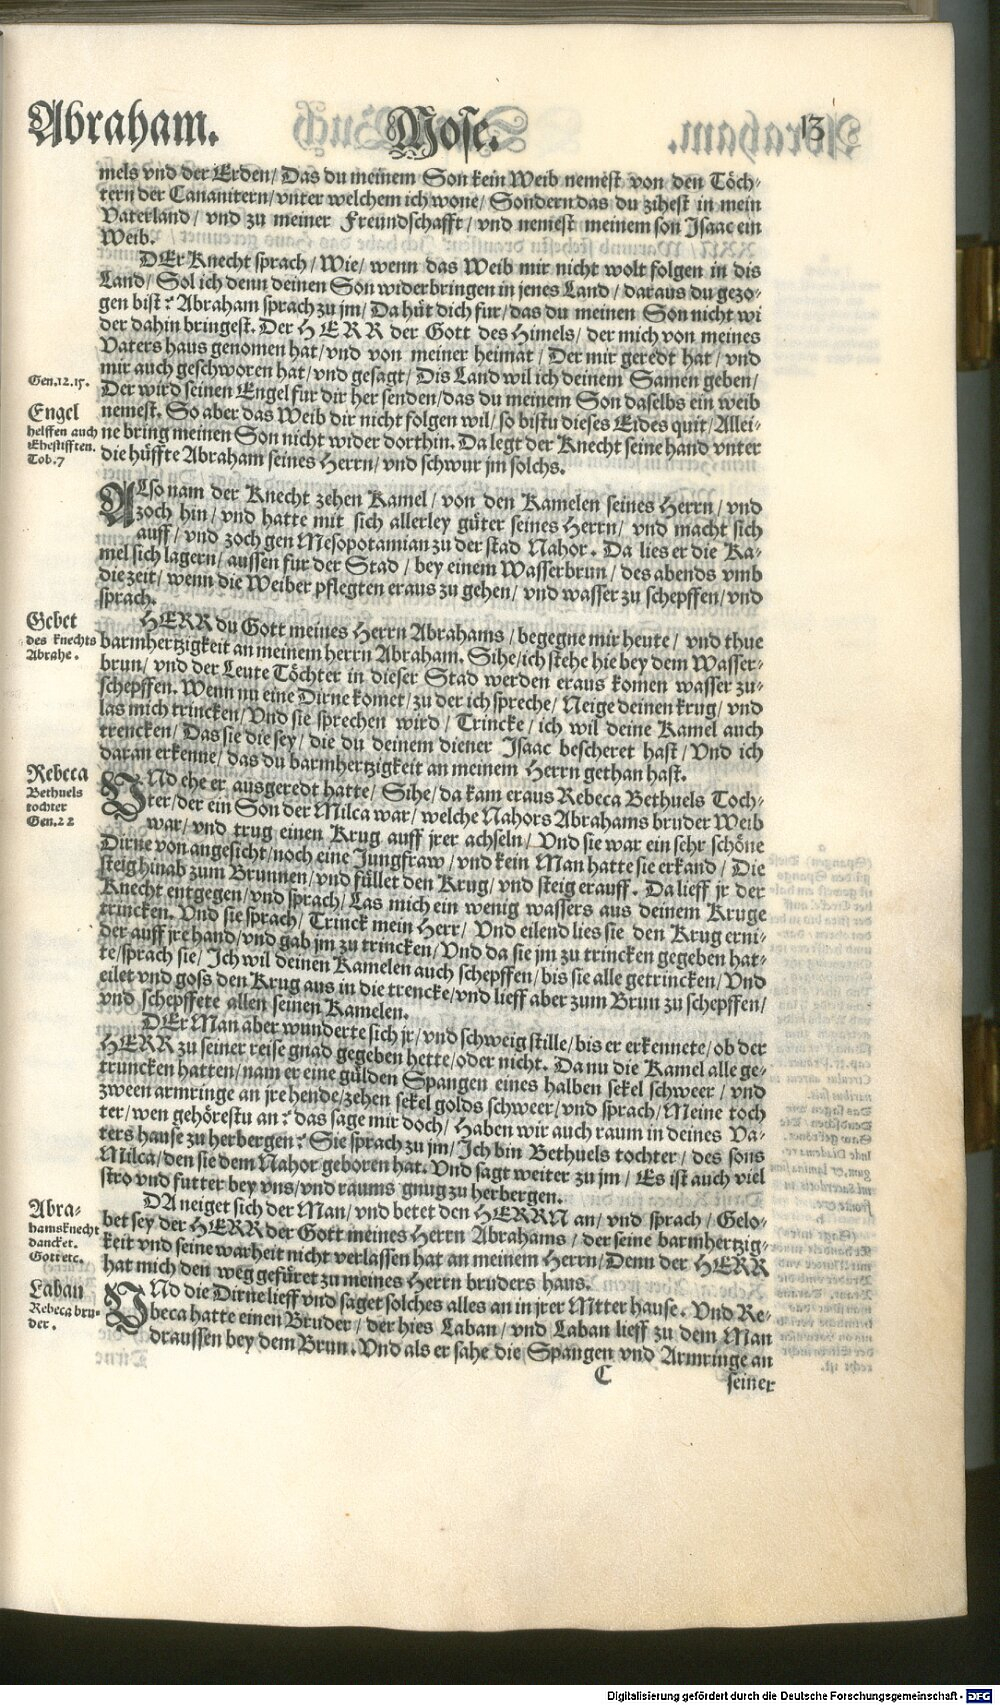 Abraham. Mose. 13
mels vnd der Erden/ Das du meinem Son kein Weib nemest von den Töch-
tern der Cananitern/ vnter welchem ich wone/ Sondern das du zihest in mein
Vaterland/ vnd zu meiner Freundschafft/ vnd nemest meinem son Isaac ein
Weib.
DEr Knecht sprach/ Wie/ wenn das Weib mir nicht wolt folgen in dis
Land/ Sol ich denn deinen Son widerbringen in jenes Land/ daraus du gezo-
gen bist? Abraham sprach zu jm/ Da hüt dich fur/ das du meinen Son nicht wi
der dahin bringest. Der HERR der Gott des Himels/ der mich von meines
Vaters haus genomen hat/ vnd von meiner heimat/ Der mir geredt hat/ vnd
mir auch geschworen hat/ vnd gesagt/ Dis Land wil ich deinem Samen geben/
Der wird seinen Engel fur dir her senden/ das du meinem Son daselbs ein weib
nemest. So aber das Weib dir nicht folgen wil/ so bistu dieses Eides quit/ Allei-
ne bring meinen Son nicht wider dorthin. Da legt der Knecht seine hand vnter
die hüffte Abraham seines Herrn/ vnd schwur jm solchs.
Gen.12.15.
Engel
helffen auch
Ehestifften.
Tob.7
ALso nam der Knecht zehen Kamel/ von den Kamelen seines Herrn/ vnd
zoch hin/ vnd hatte mit sich allerley güter seines Herrn/ vnd macht sich
auff/ vnd zoch gen Mesopotamian zu der stad Nahor. Da lies er die Ka-
mel sich lagern/ aussen fur der Stad/ bey einem Wasserbrun/ des abends vmb
die zeit/ wenn die Weiber pflegten eraus zu gehen/ vnd wasser zu schepffen/ vnd
sprach.
Gebet
des knechts
Abrahe.
HERR du Gott meines Herrn Abrahams/ begegne mir heute/ vnd thue
barmhertzigkeit an meinem herrn Abraham. Sihe/ ich stehe hie bey dem Wasser-
brun/ vnd der Leute Töchter in dieser Stad werden eraus komen wasser zu-
schepffen. Wenn nu eine Dirne komet/ zu der ich spreche/ Neige deinen krug/ vnd
las mich trincken/ Vnd sie sprechen wird/ Trincke/ ich wil deine Kamel auch
trencken/ Das sie die sey/ die du deinem diener Isaac bescheret hast/ Vnd ich
daran erkenne/ das du barmhertzigkeit an meinem Herrn gethan hast.
Rebeca
Bethuels
tochter
Gen.22
VNd ehe er ausgeredt hatte/ Sihe/ da kam eraus Rebeca Bethuels Toch-
ter/ der ein Son der Milca war/ welche Nahors Abrahams bruder Weib
war/ vnd trug einen Krug auff jrer achseln/ Vnd sie war ein sehr schöne
Dirne von angesicht/ noch eine Jungfraw/ vnd kein Man hatte sie erkand/ Die
steig hinab zum Brunnen/ vnd füllet den Krug/ vnd steig erauff. Da lieff jr der
Knecht entgegen/ vnd sprach/ Las mich ein wenig wassers aus deinem Kruge
trincken. Vnd sie sprach/ Trinck mein Herr/ Vnd eilend lies sie den Krug erni-
der auff jre hand/ vnd gab jm zu trincken/ Vnd da sie jm zu trincken gegeben hat-
te/ sprach sie/ Ich wil deinen Kamelen auch schepffen/ bis sie alle getrincken/ Vnd
eilet vnd goss den Krug aus in die trencke/ vnd lieff aber zum Brun zu schepffen/
vnd schepffete allen seinen Kamelen.
DEr Man aber wunderte sich jr/ vnd schweig stille/ bis er erkennete/ ob der
HERR zu seiner reise gnad gegeben hette/ oder nicht. Da nu die Kamel alle ge-
truncken hatten/ nam er eine gülden Spangen eines halben sekel schweer/ vnd
zween armringe an jre hende/ zehen sekel golds schweer/ vnd sprach/ Meine toch
ter/ wen gehörestu an? das sage mir doch/ Haben wir auch raum in deines Va-
ters hause zu herbergen? Sie sprach zu jm/ Ich bin Bethuels tochter/ des sons
Milca/ den sie dem Nahor geboren hat. Vnd sagt weiter zu jm/ Es ist auch viel
stro vnd futter bey vns/ vnd raums gnug zu herbergen.
Abra-
hams knecht
dancket.
Gott etc.
DA neiget sich der Man/ vnd betet den HERRN an/ vnd sprach/ Gelo-
bet sey der HERR der Gott meines Herrn Abrahams/ der seine barmhertzig-
keit vnd seine warheit nicht verlassen hat an meinem Herrn/ Denn der HERR
hat mich den weg gefüret zu meines Herrn bruders haus.
Laban
Rebeca bru-
der.
VNd die Dirne lieff vnd saget solches alles an in jrer Mtter hause. Vnd Re-
beca hatte einen Bruder/ der hies Laban/ vnd Laban lieff zu dem Man
draussen bey dem Brun. Vnd als er sahe die Spangen vnd Armringe an
C seiner
Digitalisierung gefördert durch die Deutsche Forschungsgemeinschaft - DFG